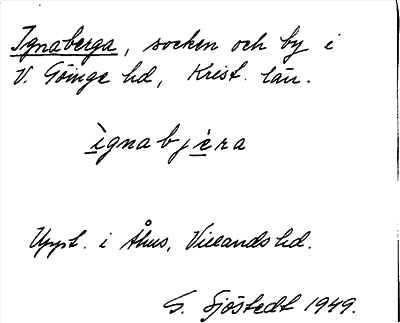 Ignaberga, socken och by i
V. Göinge hd, Krist. län.
ìgnabjèra
Uppt. i Åhus, Villands hd.
G. Sjöstedt 1949.